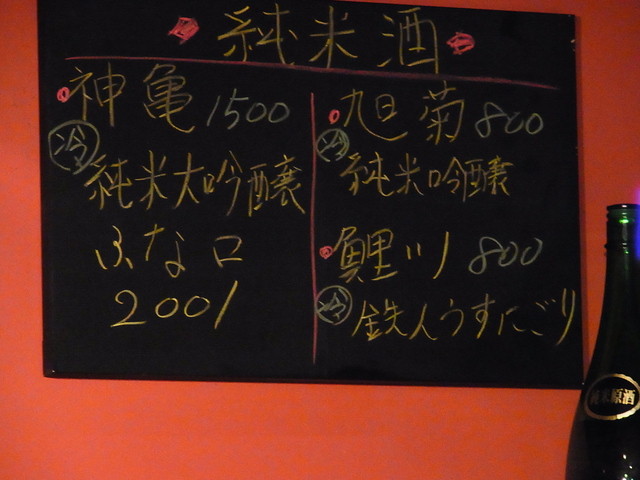 純米酒
神亀 1500
冷 純米大吟醸
ふな口
2001
旭菊 800
冷 純米吟醸
鯉川 800
冷 鉄人うすにごり
純米原酒